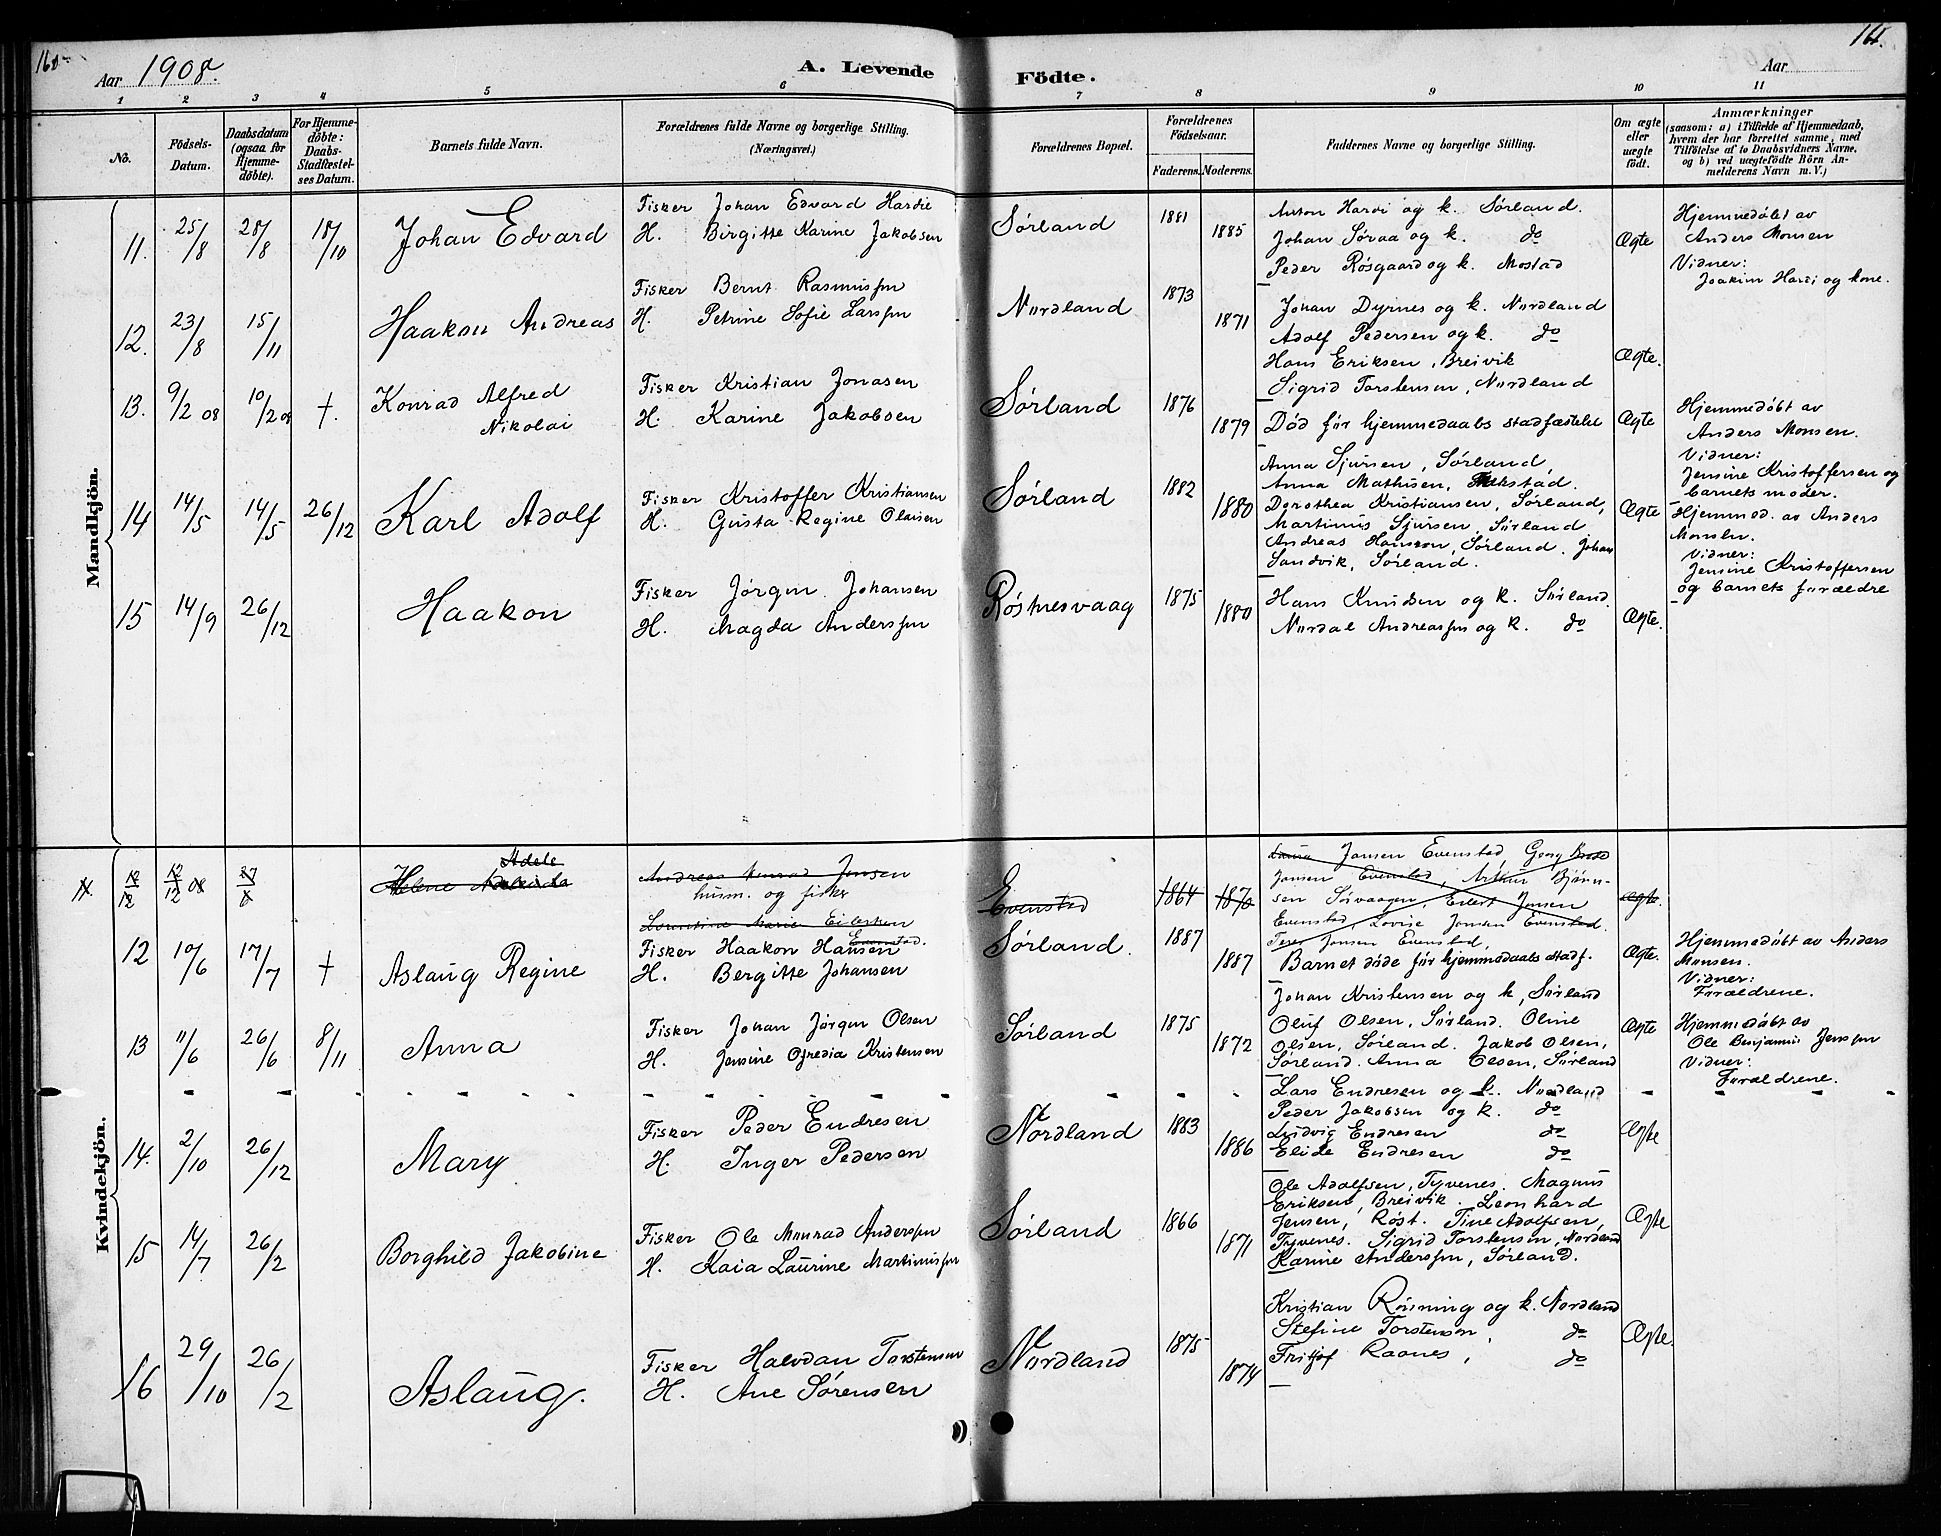 160
Aar 1908.
A. Levende Födte.
Aar
161.
1 2 3 4 5 6 7 8 9 10 11
No.
Födsels-Datum.
Daabsdatum (ogsaa for Hjemme-döbte).
For Hjemme-döbte: Daabs-Stadfæstel-ses Datum.
Barnets fulde Navn.
Forældrenes fulde Navne og borgerlige Stilling. (Næringsvei.)
Forældrenes Bopæl.
Forældrenes Födselsaar.
Faderens. Moderens.
Faddernes Navne og borgerlige Stilling.
Om ægte eller uægte födt.
Anmærkninger
(saasom: a) i Tilfælde af Hjemmedaab, hvem der har forrettet samme, med Tilföielse af to Daabsvidners Navne, og b) ved uægtefödte Börn An-melderens Navn m. V.)
Mandkjön.
11. 25/8 28/8 18/10 Johan Edvard
Fisker Johan Edvard Hardie
H. Birgitte Karine Jakobsen
Sørland 1881 1885
Anton Hardi og k. Sørland.
Johan Søraa og k. do
Peder Røsgaard og k. Mostad
Ægte
Hjemmedøbt av
Anders Monsen
Vidner:
Joakim Hardi og kone.
12. 23/8 15/11 Haakon Andreas
Fisker Bernt Rasmussen
H. Petrine Sofie Larssen
Nordland 1873 1871
Johan Dyrnes og k. Nordland
Adolf Pedersen og k. do
Hans Eriksen, Breivik
Sigrid Torstensen, Nordland
Ægte.
13. 9/2 08 10/2 08 †. Konrad Alfred
Nikolai
Fisker Kristian Jonasen
H. Karine Jakobsen
Sørland 1876 1879
Død før hjemmedaabs stadfæstelse
Ægte
Hjemmedøbt av
Anders Monsen.
Vidner:
Jensine Kristoffersen og
barnets moder.
14 14/5 14/5 26/12 Karl Adolf
Fisker Kristoffer Kristiansen
H. Gusta Regine Olaisen
Sørland 1882 1880
Anna Sjursen, Sørland,
Anna Mathisen,
Dorothea Kristiansen, Sørland,
Martinus Sjursen, Sørland
Andreas Hansen, Sørland. Johan
Sandvik, Sørland.
Ægte
Hjemmed. av Anders
Monsen.
Vidner:
Jensine Kristoffersen
og barnets forældre
15 14/9 26/12 Haakon
Fisker Jørgen Johansen
H. Magda Anderssen
Røstnesvaag 1875 1880
Hans Knudsen og k. Sørland.
Nordal Andreassen og k. do
Ægte.
Kvindekjön.
11. 12/12 08 Helene Adele
Andreas Konrad Jensen
husm. og fisker
Lorentine Marie Eilertsen
Evenstad.
Evenstad 1864 1870
Jensen Evenstad Georg
Jensen Evenstad, Arthur Bjørn-
sen Sørvaagen, Edert Jensen
Evenstad, Lovise Jensen Evenstad.
Jensen Evenstad.
Ægte.
12 10/6 17/7 † Aslaug Regine
Fisker Haakon Hansen
H. Bergitte Johansen
Sørland. 1887 1887
Barnet døde før hjemmedaabs stadf.
Ægte.
Hjemmedøbt av Anders
Monsen.
Vidner:
Forældrene.
13 11/6 26/6 8/11 Anna
Fisker Johan Jørgen Olsen
H. Jensine Ofredia Kristensen
Sørland 1875 1872
Johan Kristensen og k, Sørland
Oluf Olsen, Sørland. Oline
Olsen, Sørland. Jakob Olsen,
Sørland. Anna Olsen, Sørland
Ægte
Hjemmedøbt av
Ole Benjamin Jenssen
Vidner:
Forældrene.
14. 2/10 26/12 Mary
Fisker Peder Endresen
H. Inger Pedersen
Nordland 1883 1886
Lars Endresen og k. Nordland
Peder Jakobsen og k. do
Ludvig Endresen do
Elide Endresen do
Ægte
15 14/7 26/2 Borghild Jakobine
Fisker Ole Monrad Anderssen
H. Kaia Laurine Martinussen
Sørland 1866 1871
Ole Adolfsen, Tyvenes. Magnus
Eriksen, Breivik. Leonhard
Jensen, Røst. Tine Adolfsen,
Tyvenes. Sigrid Torstensen, Nordland
Karine Anderssen, Sørland.
Ægte
16 29/10 26/2 Aslaug.
Fisker Halvdan Torstensen
H. Ane Sørensen
Nordland 1875 1874
Kristian Rønning og k. Nordland
Stefine Torstensen, do
Fritjof Raanes, do
Ægte.